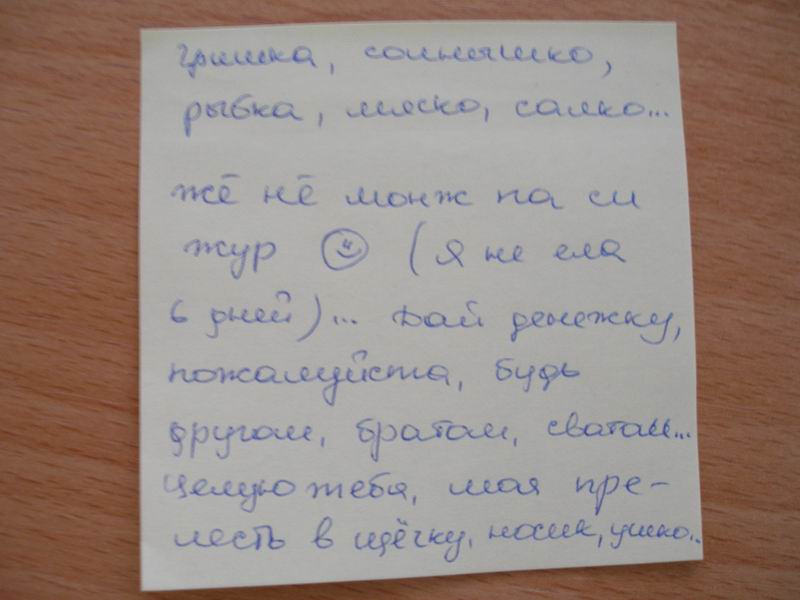 Гришка, солнышко,
рыбка, мяско, салко...
жё нё монж па си
жур (я не ела
6 дней)... Дай денежку,
пожалуйста, будь
другом, братом, сватом...
Целую тебя, моя пре-
лесть в щёчку, носик, ушко..